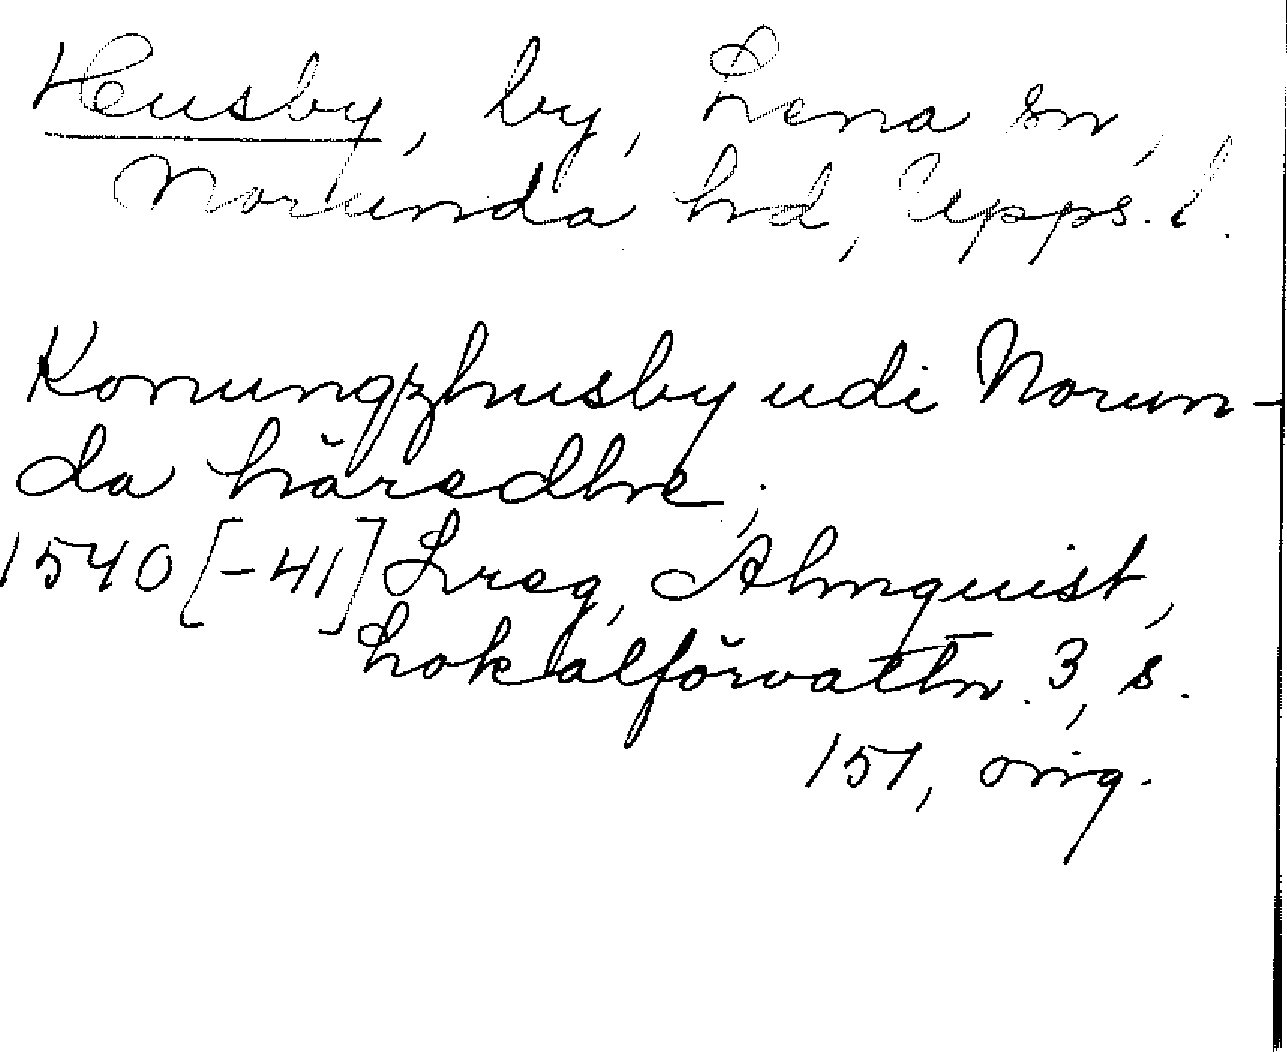 Husby, by, Lena sn,
Norunda hd, Upps. l.
Konungzhusby udi Norun-
da häredhe;
1540 [-41] Lreg, Almquist,
Lokalförvaltn. 3, s.
151, orig.